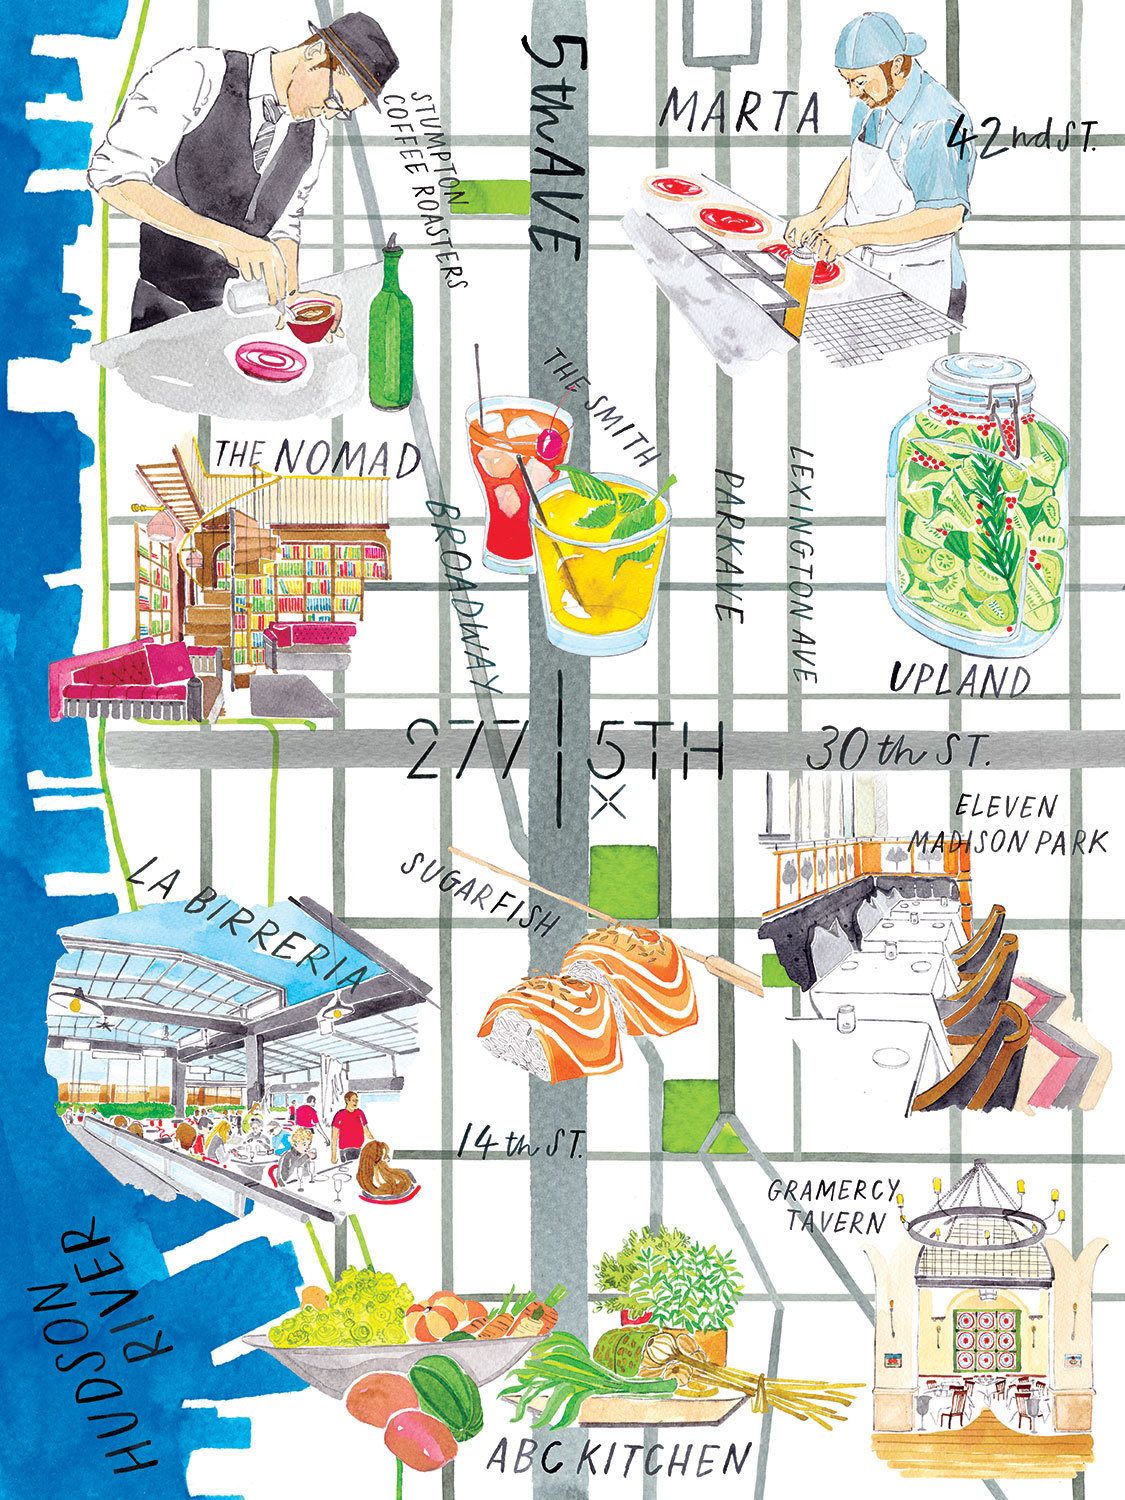 STUMPTON
COFFEE ROASTERS
5th AVE
MARTA
42nd ST.
THE NOMAD
THE SMITH
BROADWAY
PARK AVE
LEXINGTON AVE
UPLAND
277 5TH
30th ST.
ELEVEN
MADISON PARK
LA BIRRERIA
SUGARFISH
14th ST.
GRAMERCY
TAVERN
HUDSON
RIVER
ABC KITCHEN